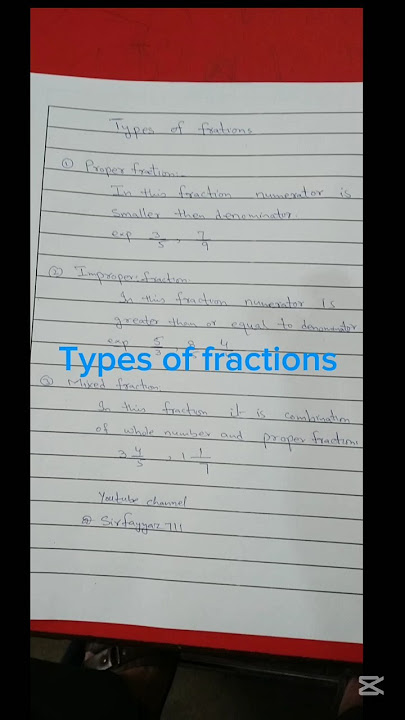 Types of frations
① Proper frction:-
In this fraction numerator is
smaller then denominator.
exp 3/5 , 7/9
② Improper fraction
In this fraction numerator is
greater then or equal to denominator
exp 5/3 , 8 4
Types of fractions
③ Mixed fraction:
In this fraction it is combination
of whole number and proper fraction
3 4/5 , 1 1/7
Youtube channel
@ Sirfayyaz711